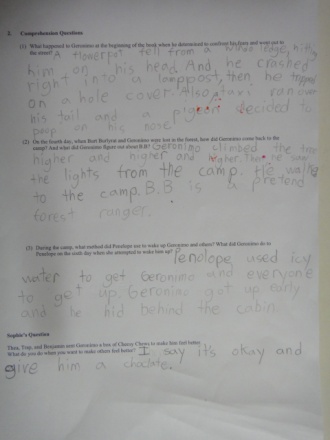 2. Comprehension Questions
(1) What happened to Geronimo at the beginning of the book when he determined to confront his fears and went out to
the street? A flowerpot fell from a window ledge, hitting
him on his head. And, he crashed
right into a lamppost, then he tripped
on a hole cover. Also a taxi ran over
his tail and a pigeon decided to
poop on his nose.
(2) On the fourth day, when Bort Borlyrat and Geronimo were lost in the forest, how did Geronimo come back to the
camp? And what did Geronimo figure out about B.B? Geronimo climbed the tree
higher and higher and higher. Then he saw
the lights from the camp. He walked
to the camp. B.B is a pretend
forest ranger.
(3) During the camp, what method did Penelope use to wake up Geronimo and others? What did Geronimo do to
Penelope on the sixth day when she attempted to wake him up? Penelope used icy
water to get Geronimo and everyone
to get up. Geronimo got up early
and he hid behind the cabin.
Sophie's Question
Thea, Trap, and Benjamin sent Geronimo a box of Cheesy Chews to make him feel better.
What do you do when you want to make others feel better? I say it's okay and
give him a choclate.